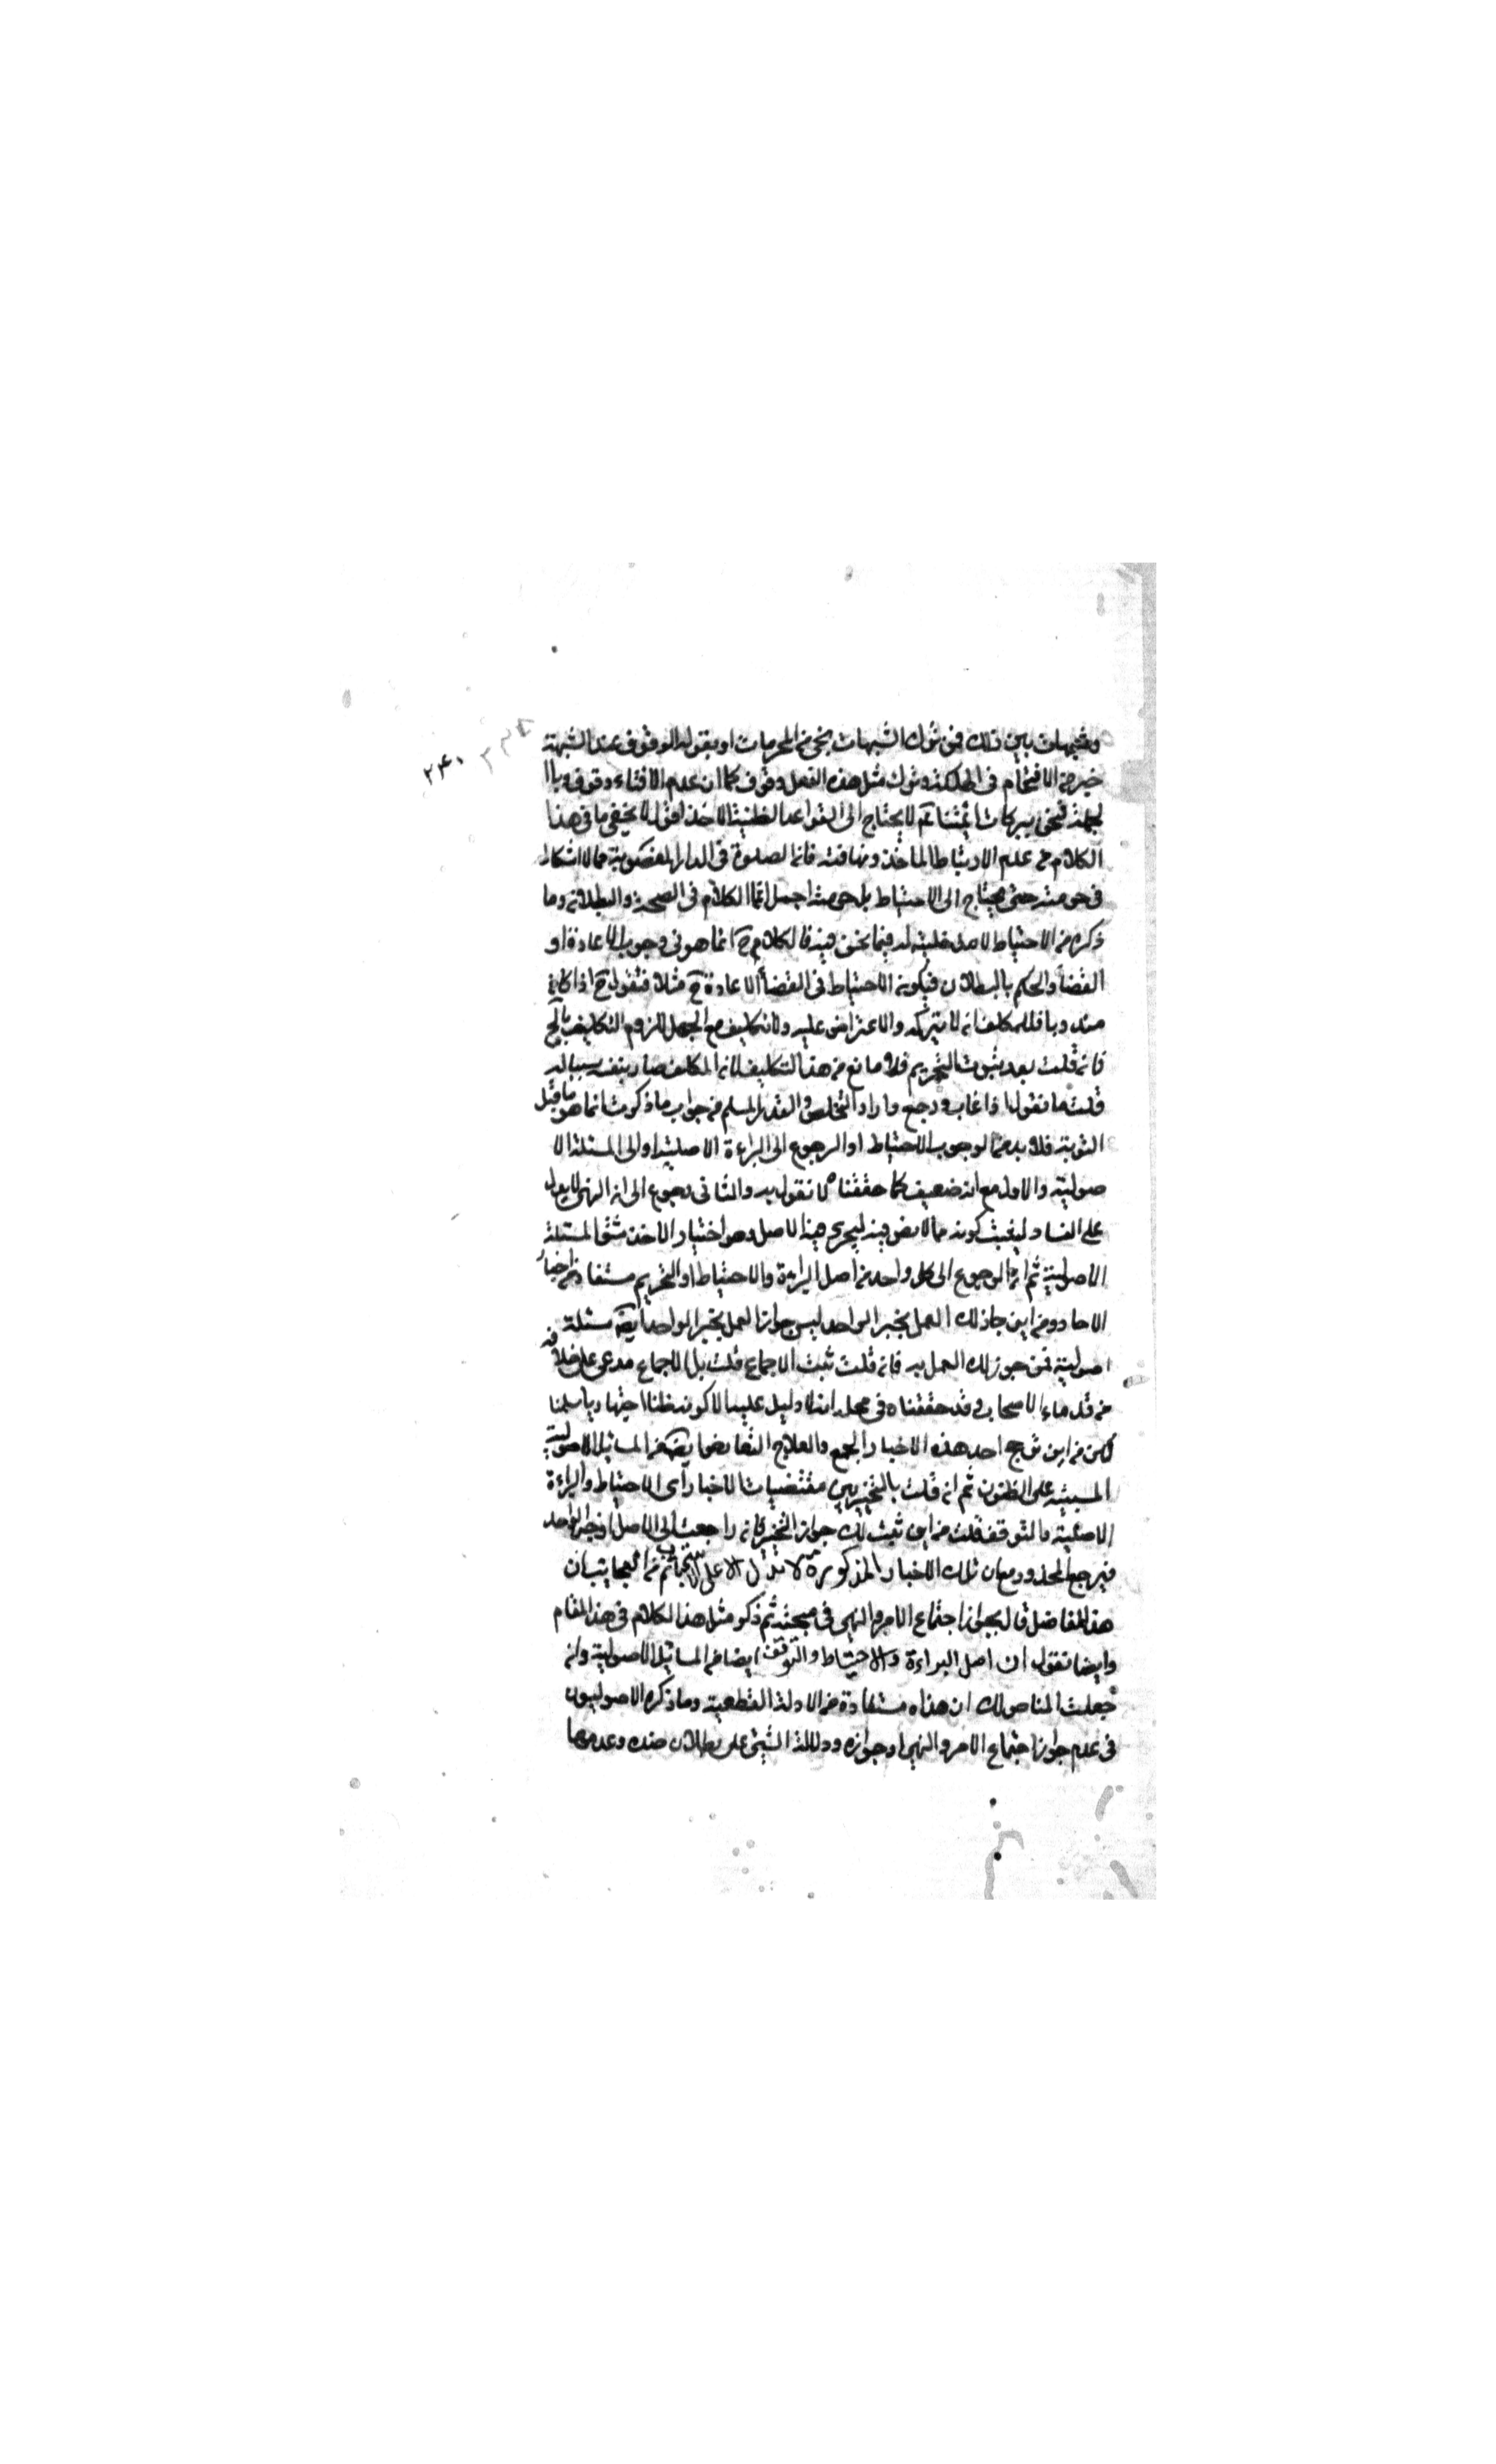 وشبهات بين ذلك فمن ترك الشبهات نجى من المحرمات او بقوله الوقوف عند الشبهة
خير من الاقتحام فى الهلكة وترك مثل هذه الفعل وقوف كما ان عدم الافتاء وقوف وبا
لجملة فنحن ببركات ائمتنا لا يحتاج الى القواعد الظنية الاخذ اقول لا يخفى ما فى هذا
الكلام من عدم الارتباط الماخذ وتهافته فان الصلوة فى الدار المغصوبة مما لا اشكال
فى حرمته حتى يحتاج الى الاحتياط بل حرمته اجمل انما الكلام فى الصحة والبطلان وما
ذكره من الاحتياط لا مدخلية له فيما نحن فيه فالكلام ح انما هو فى وجوب الاعادة او
القضاء والحكم بالبطلان فيكون الاحتياط فى القضاء الاعادة ح مثلا فنقول ح اذا كان
مندوبا فللمكلف ان لا يتركه والاعتراض عليه ولا تكليف مع الجهل للزوم التكليف بالمح
فان قلت بعد ثبوت التحريم فلا مانع من هذا التكليف لان المكلف صار بنفسه سببا له
قلت ما تقول اذا غاب ورجع واراد التخلص والقدر المسلم من جواب ما ذكرت انما هو ما قبل
التوبة فلا بد من الوجوب الاحتياط او الرجوع الى البراءة الاصلية او الى المسئلة الا
صولية والاول مع انه ضعيف كما حققناه لا نقول به والثانى رجوع الى ان النهى لا يدل
على الفساد ليثبت كونه مما لا نص فيه ليجرى فيه الاصل وهو اختيار الاخذ شقى المسئلة
الاصولية ثم ان الرجوع الى كل واحد من اصل البراءة والاحتياط او التحريم مستفاد من اخبار
الاحاد ومن اين جاز لك العمل بخبر الواحد ليس جواز العمل بخبر الواحد ايضا مسئلة
اصولية فمن جوز لك العمل به فان قلت ثبت الاجماع قلت بل الاجماع مدعى على خلافه
من قدماء الاصحاب وقد حققناه فى محله انه لا دليل عليه الا كونه ظنا اجتهاديا سلمنا
لكن من اين ترجح احد هذه الاخبار والجمع والعلاج التعارض ايضا من المسائل الاصولية
المبنية على الظنون ثم ان قلت بالتخيير بين مقتضيات الاخبار اى الاحتياط والبراءة
الاصلية والتوقف قلت من اين ثبت لك جواز التخيير فان راجعت الى الاصل او خبر الواحد
فيرجع المحذور مع ان تلك الاخبار المذكورة لا تدل الا على الاستحباب ثم من العجايب ان
هذا الفاضل قال بجواز اجتماع الامر والنهى فى مبحثه ثم ذكر مثل هذا الكلام فى هذا المقام
وايضا نقول ان اصل البراءة والاحتياط والتوقف ايضا من المسائل الاصولية وان
جعلت المناص لك ان هذاه مستفادة من الادلة القطعية وما ذكره الاصوليون
فى عدم جواز اجتماع الامر والنهى او جوازه ودلالة الشيئ على بطلان ضده وعدمها
٢٤٠